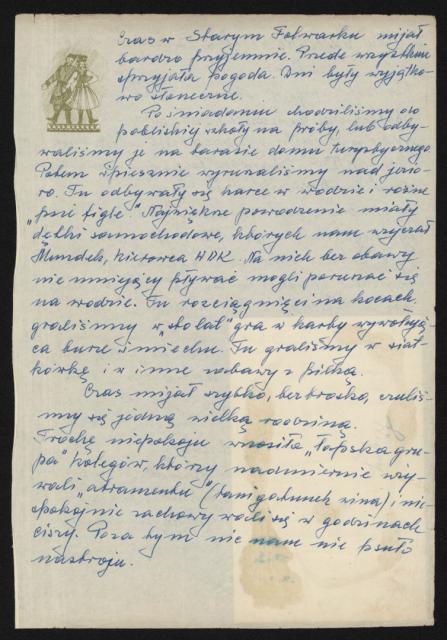 Czas w Starym Folwarku mijał
bardzo przyjemnie. Przede wszystkim
sprzyjała pogoda. Dni były wyjątko-
wo słoneczne.
Po śniadaniu chodziliśmy do
pobliskiej szkoły na próby, lub odby-
waliśmy je na tarasie domu turystycznego.
Potem śpiesznie wyruszaliśmy nad jezio-
ro. Tu odbywały się harce w wodzie i różne
"psie figle". Największe powodzenie miały
dętki samochodowe, których nam użyczał
Mundek, kierowca HDK. Na nich bez obawy
nie umiejący pływać mogli poruszać się
na wodzie. Tu rozciągnięci na kocach,
graliśmy w "sto lat" gra w karty wywołują-
ca burze śmiechu. Tu graliśmy w siat-
kówkę i w inne zabawy z piłką.
Czas mijał szybko, beztrosko, czuliś-
my się jedną wielką rodziną.
Trochę niepokoju wnosiła "
pa" kolegów, którzy nadmiernie uży-
wali "atramentu" (tani gatunek wina) i nie-
spokojnie zachowywali się w godzinach
ciszy. Poza tym nic nam nie psuło
nastroju.